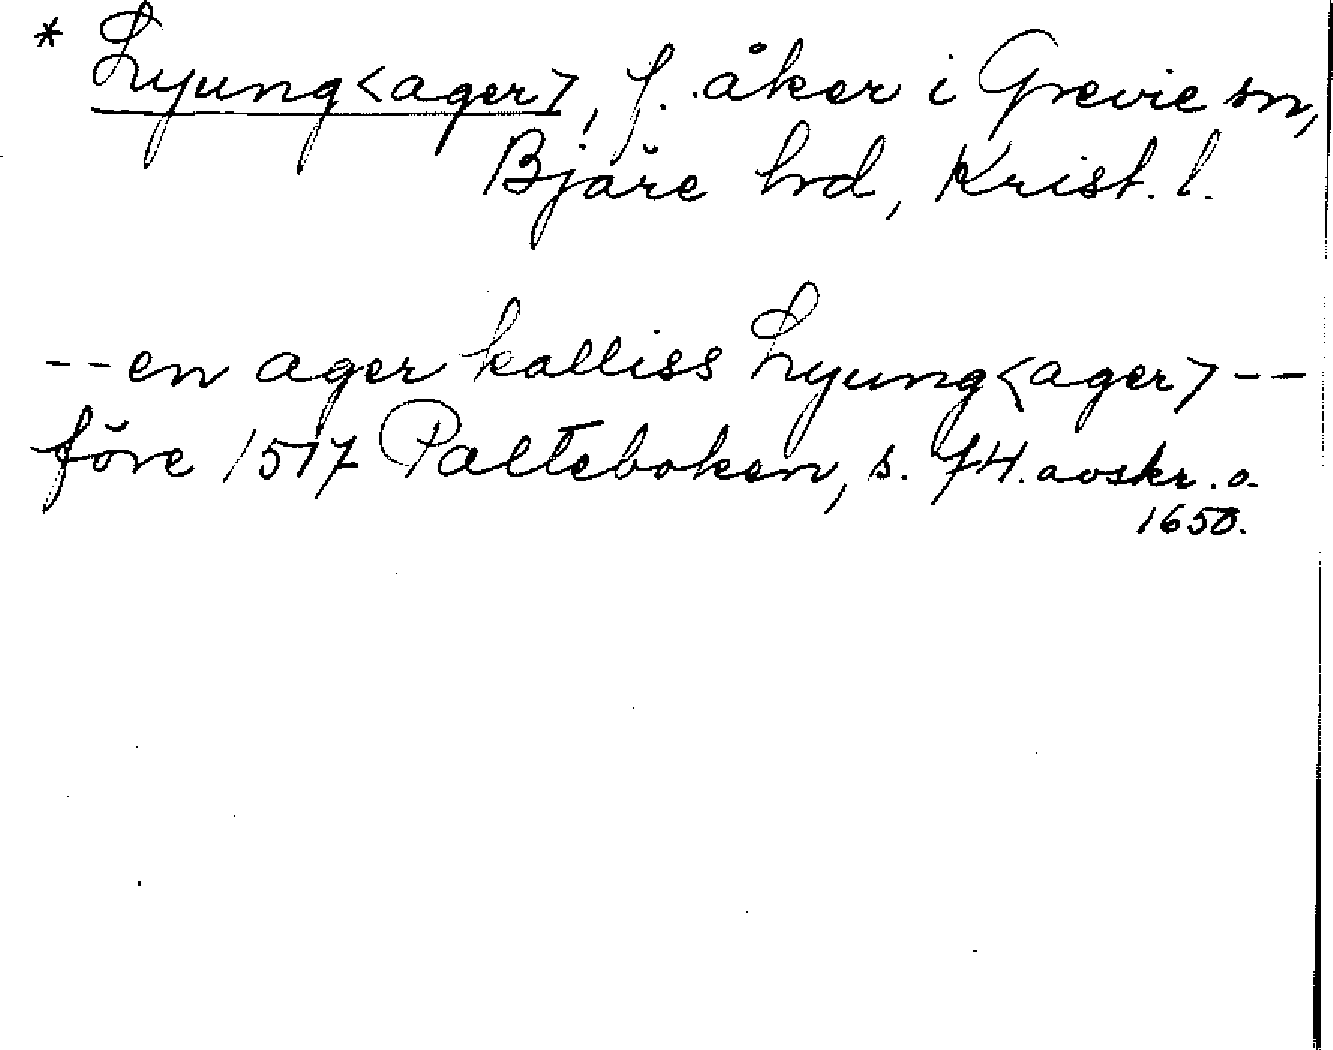 * Lyung<ager>, f. åker i Grevie sn,
Bjäre hd, Krist. l.
--en ager kalliss Lyung<ager>--
före 1517 Palteboken, s. 74. avskr. o.
1650.